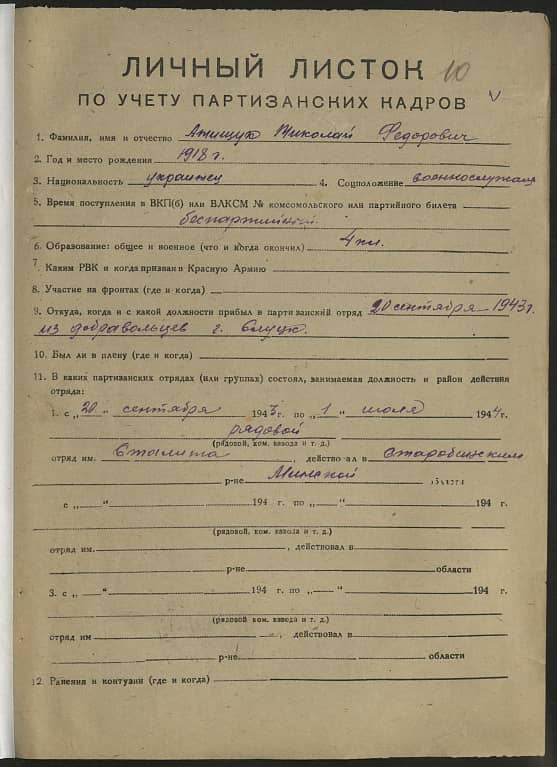 ЛИЧНЫЙ ЛИСТОК 10
ПО УЧЕТУ ПАРТИЗАНСКИХ КАДРОВ V
1. Фамилия, имя и отчество Николай Федорович
2. Год и место рождения 1918 г.
3. Национальность украинец 4. Соцположение военнослужащ
5. Время поступления в ВКП(б) или ВЛКСМ № комсомольского или партийного билета
беспартийный
6. Образование: общее и военное (что и когда окончил) 4 кл.
7. Каким РВК и когда призван в Красную Армию
8. Участие на фронтах (где и когда)
9. Откуда, когда и с какой должности прибыл в партизанский отряд 20 сентября 1943 г.
из добравольцев г. Слуцк.
10. Был ли в плену (где и когда)
11. В каких партизанских отрядах (или группах) состоял, занимаемая должность и район действия
отряда:
1. с „20“ сентября 1943 г. по „1“ июля 1944 г.
рядовой
(рядовой, ком. взвода и т. д.)
отряд им. Сталина, действовал в Старобинском
р-не Минской области
с „ “ 194 г. по „ “ 194 г.
(рядовой, ком. взвода и т. д.)
отряд им. , действовал в
р-не области
3. с „ “ 194 г. по „ “ 194 г.
(рядовой, ком. взвода и т. д.)
отряд им , действовал в
р-не области
12. Ранения и контузии (где и когда)